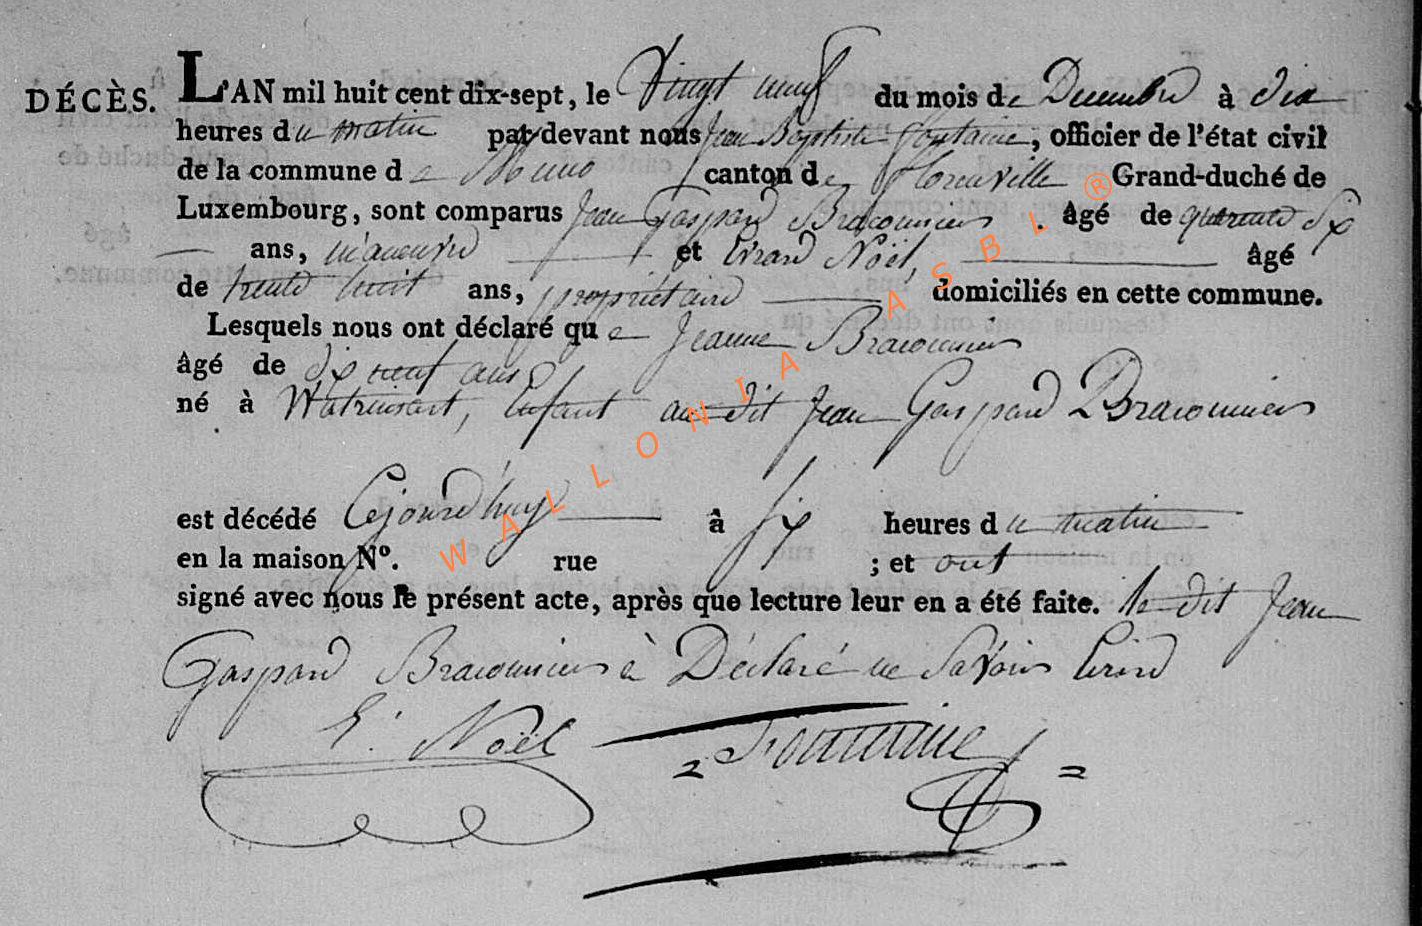 DÉCÈS. L'AN mil huit cent dix-sept, le Vingt neuf du mois de Decembre à dix
heures du matin par devant nous Jean Baptiste fontaine, officier de l'état civil
de la commune de Muno canton de florenville Grand-duché de
Luxembourg, sont comparus Jean Gaspard Braconnier âgé de quarente six
ans, manœuvre et Evrard Noël, âgé
de trente huit ans, propriétaire domiciliés en cette commune.
Lesquels nous ont déclaré que Jeanne Braconnier
âgé de dix neuf ans
né à Watrinsart, Enfant au dit Jean Gaspard Braconnier
est décédé Cejourd'huy à six heures du matin
en la maison Nº. rue ; et ont
signé avec nous le présent acte, après que lecture leur en a été faite. le dit Jean
Gaspard Braconnier à Déclaré ne Savoir Ecrire
E. Noël Fontaine
WALLONIA ASBL ®